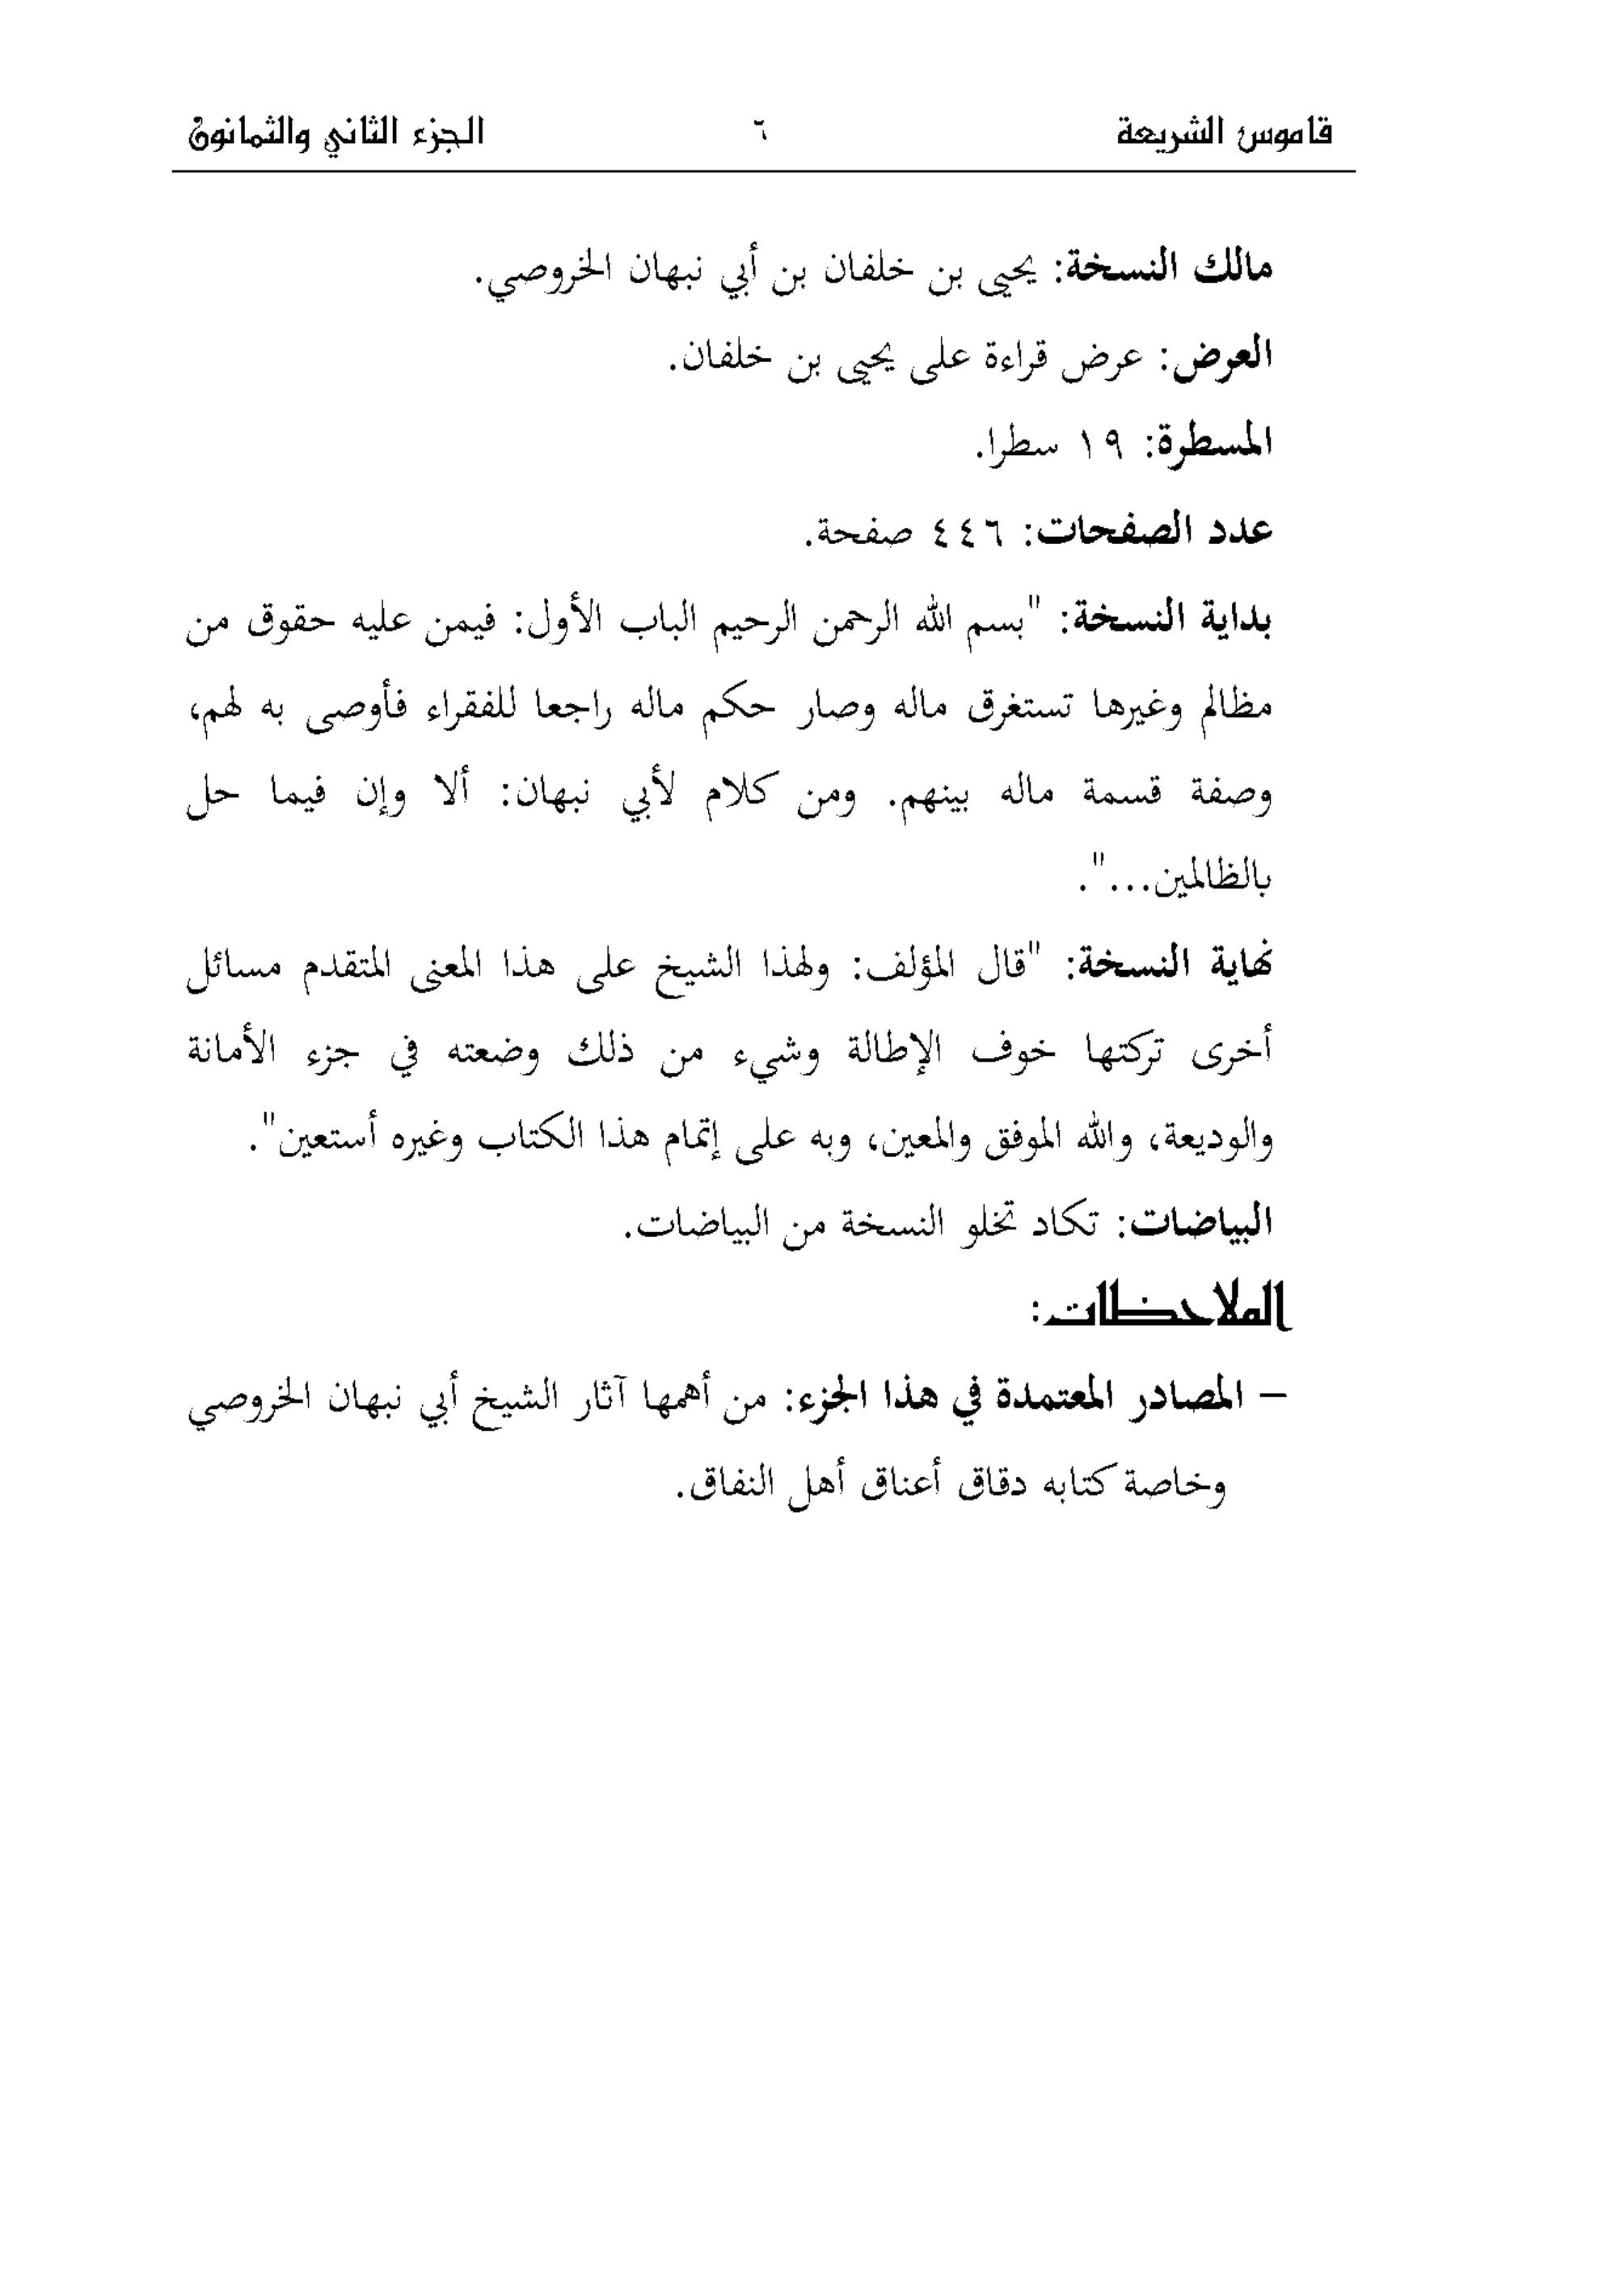 قاموس الشريعة ٦ الجزء الثاني والثمانون
مالك النسخة: يحيى بن خلفان بن أبي نبهان الخروصي.
العرض: عرض قراءة على يحيى بن خلفان.
المسطرة: ١٩ سطرا.
عدد الصفحات: ٤٤٦ صفحة.
بداية النسخة: "بسم الله الرحمن الرحيم الباب الأول: فيمن عليه حقوق من
مظالم وغيرها تستغرق ماله وصار حكم ماله راجعا للفقراء فأوصى به لهم،
وصفة قسمة ماله بينهم. ومن كلام لأبي نبهان: ألا وإن فيما حل
بالظالمين...".
نهاية النسخة: "قال المؤلف: ولهذا الشيخ على هذا المعنى المتقدم مسائل
أخرى تركتها خوف الإطالة وشيء من ذلك وضعته في جزء الأمانة
والوديعة، والله الموفق والمعين، وبه على إتمام هذا الكتاب وغيره أستعين".
البياضات: تكاد تخلو النسخة من البياضات.
الملاحظات:
– المصادر المعتمدة في هذا الجزء: من أهمها آثار الشيخ أبي نبهان الخروصي
وخاصة كتابه دقاق أعناق أهل النفاق.